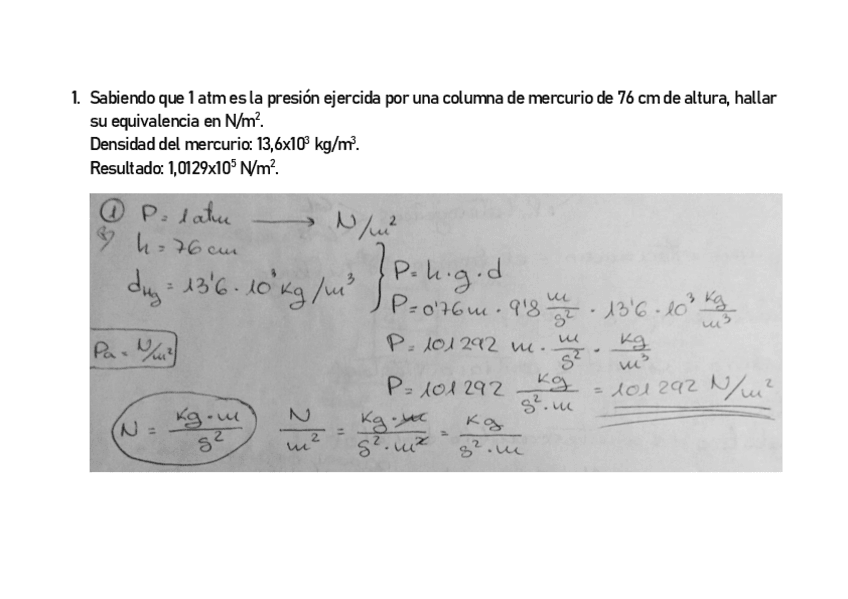 1. Sabiendo que 1 atm es la presión ejercida por una columna de mercurio de 76 cm de altura, hallar
su equivalencia en N/m².
Densidad del mercurio: 13,6x10³ kg/m³.
Resultado: 1,0129x10⁵ N/m².
① P = 1 atm ⟶ N/m²
h = 76 cm
d_Hg = 13'6 · 10³ Kg/m³
P = h · g · d
P = 0'76 m · 9'8 m/s² · 13'6 · 10³ Kg/m³
Pa = N/m²
P = 101292 m · m/s² · Kg/m³
P = 101292 Kg/s²·m = 101292 N/m²
N = Kg·m/s² N/m² = Kg·m/s²·m² = Kg/s²·m